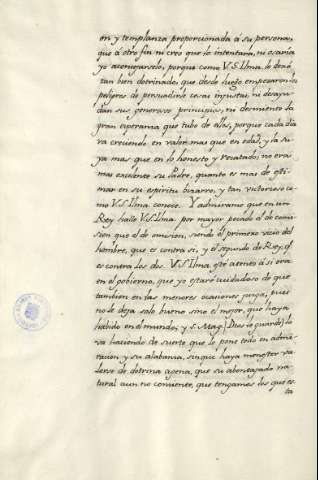 on y templanza proporcionada á su persona,
que á otro fin ni creo que lo intentara, ni osaria
yo aconsejarselo, porque como V.S. Ilma. le dexó
tan bien dotrinado, que desde luego empezaron los
peligros de persuadirle cosas injustas, ni desayu-
dan sus generosos principios, ni desmiente la
gran esperanza que tubo de ellas, porque cada dia
va creciendo en valor mas que en edad, y la su
ya mas que en lo honesto y recatado, no era
mas excelente su Padre, quanto es mas de esti-
mar en su espiritu bizarro, y tan victorioso co-
mo V.S. Ilma. conoce. Y admirame que en un
Rey halle V.S. Ilma. por mayor pecado el de comi-
sion que el de omision, siendo el primero vicio del
hombre, que es contra si, y el segundo de Rey, q.e
es contra los dos. V.S. Ilma. esté atento á si era
en el gobierno, que yo estaré cuidadoso de que
tambien en las menores ocasiones juzga, pues
no le dexa solo bueno sino el mejor, que haya
habido en el mundo, y S. Mag.d (Dios le guarde) lo
va haciendo de suerte que lo pone todo en admi-
racion y su alabanza, sin que haya menester va-
lerse de dotrina agena, que su abentajado na-
tural aun no consiente, que tengamos los que es-
ta